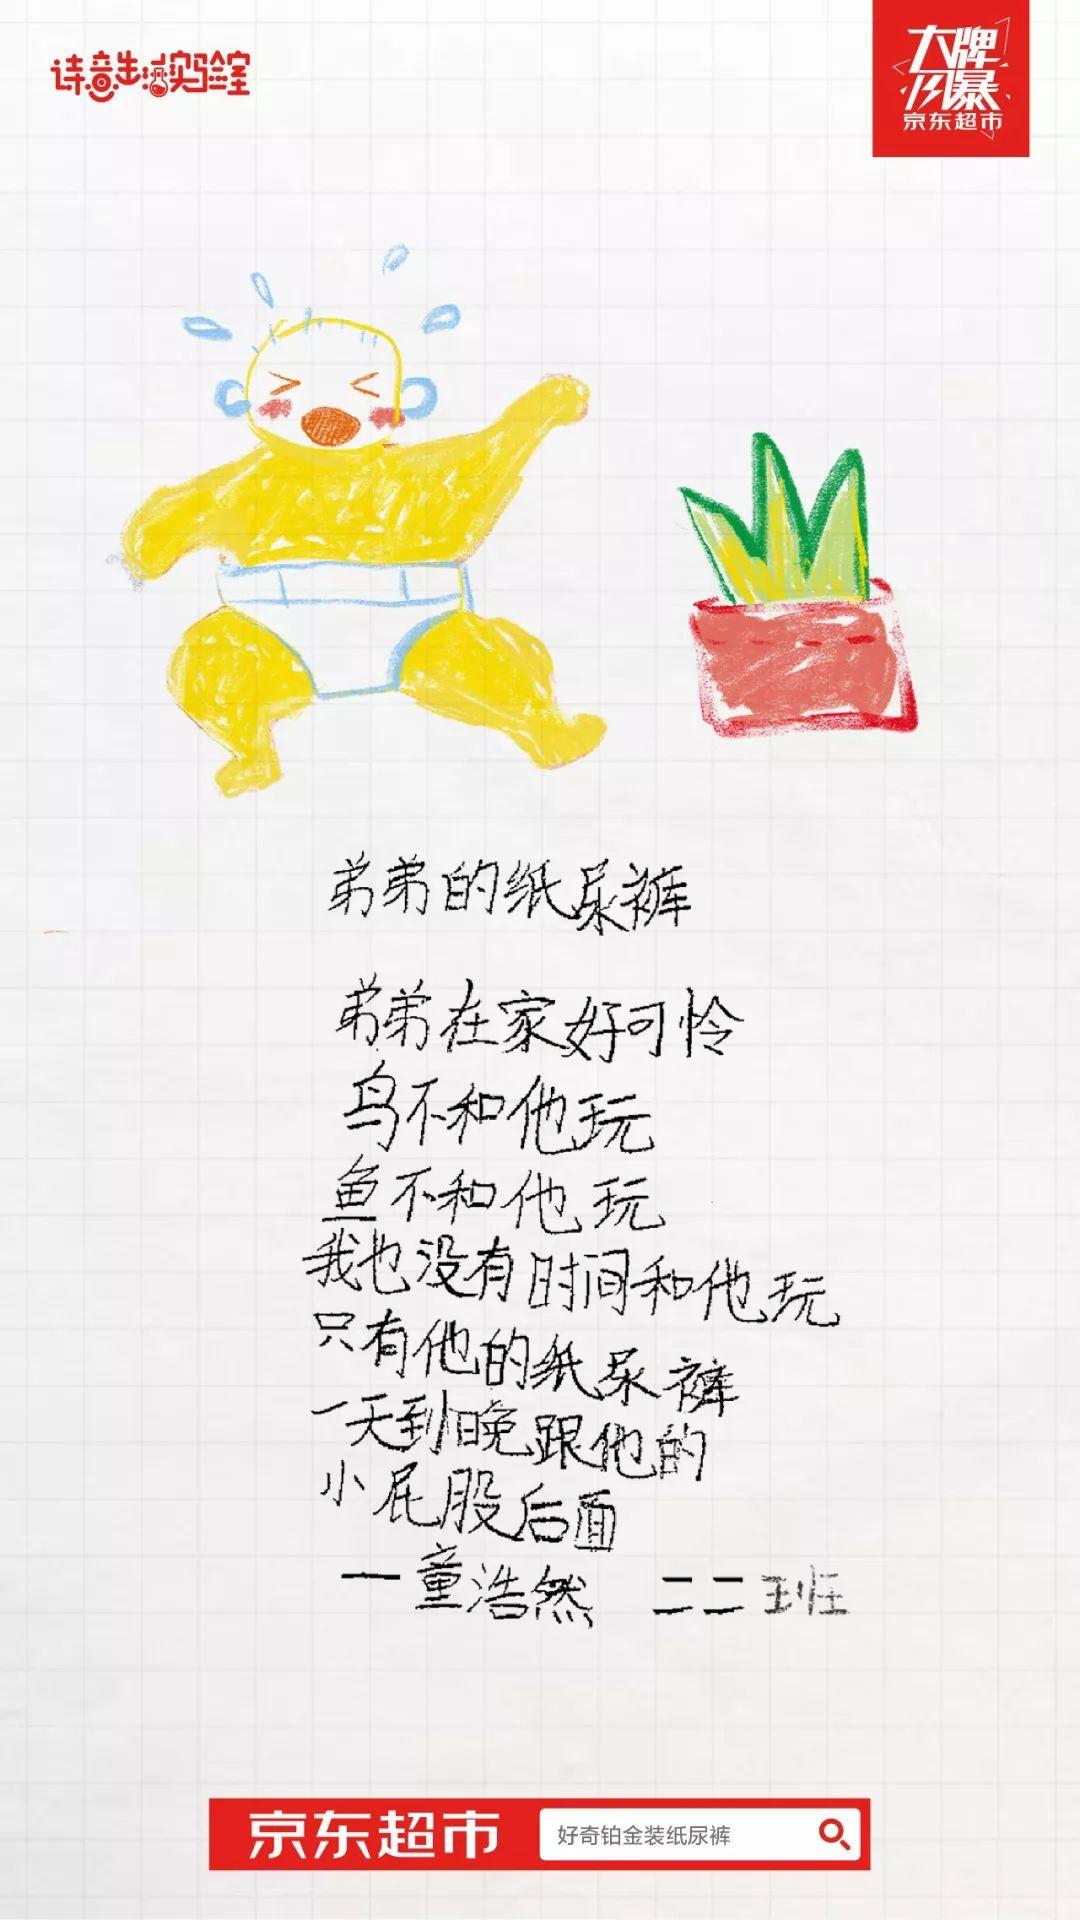 诗意生活实验室
大牌
风暴
京东超市
弟弟的纸尿裤
弟弟在家好可怜
鸟不和他玩
鱼不和他玩
我也没有时间和他玩
只有他的纸尿裤
一天到晚跟他的
小屁股后面
—童浩然 二二班
京东超市 好奇铂金装纸尿裤